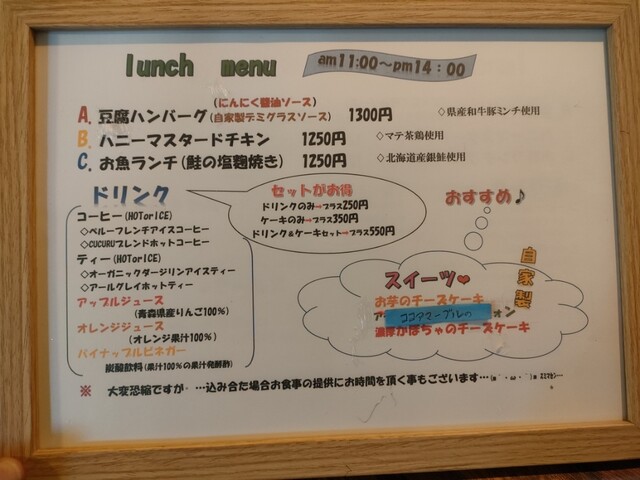 lunch menu
am11:00〜pm14：00
A. 豆腐ハンバーグ(にんにく醤油ソース)(自家製デミグラスソース) 1300円 ◇県産和牛豚ミンチ使用
B. ハニーマスタードチキン 1250円 ◇マテ茶鶏使用
C. お魚ランチ(鮭の塩麹焼き) 1250円 ◇北海道産銀鮭使用
ドリンク
コーヒー(HOTorICE)
◇ペルーフレンチアイスコーヒー
◇CUCURUブレンドホットコーヒー
ティー(HOTorICE)
◇オーガニックダージリンアイスティー
◇アールグレイホットティー
アップルジュース
(青森県産りんご100%)
オレンジジュース
(オレンジ果汁100%)
パイナップルビネガー
炭酸飲料(果汁100%の果汁発酵酢)
セットがお得
ドリンクのみ→プラス250円
ケーキのみ→プラス350円
ドリンク&ケーキセット→プラス550円
おすすめ♪
自家製
スイーツ❤
お芋のチーズケーキ
ココアマーブルの
ォン
濃厚かぼちゃのチーズケーキ
※ 大変恐縮ですが・…込み合た場合お食事の提供にお時間を頂く事もございます…